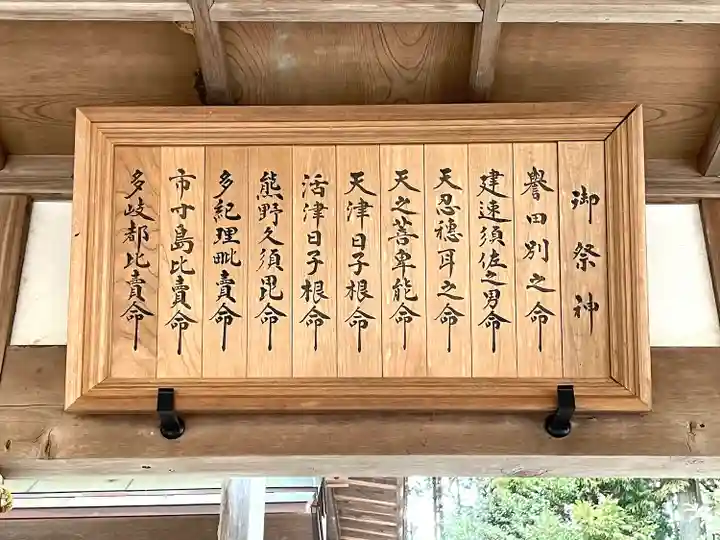 御祭神
譽田別之命
建速須佐之男命
天忍穗耳之命
天之菩卑能命
天津日子根命
活津日子根命
熊野久須毘命
多紀理毗賣命
市寸島比賣命
多岐都比賣命